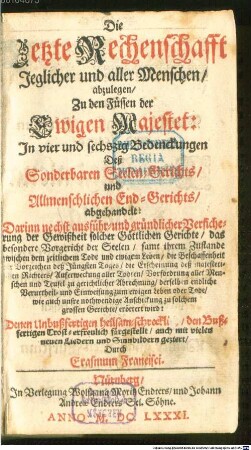 Die
Letzte Rechenschafft
Jeglicher und aller Menschen/
abzulegen/
Zu den Füssen der
Ewigen Majestet:
In vier und sechszig Bedenckungen
Deß
Sonderbaren Seelen-Gerichts/
und
Allmenschlichen End-Gerichts/
abgehandelt:
Darinn nechst ausführ- und gründlicher Versiche-
rung der Gewißheit solcher Göttlichen Gerichte/ das
besondre Vorgericht der Seelen/ samt ihrem Zustande
zwischen dem zeitlichem Tode und ewigem Leben/ die Beschaffenheit
Vorzeichen deß Jüngsten Tages/ die Erscheinung deß majestet-
en Richters/ Auferweckung aller Todten/ Vorforderung aller Men-
schen und Teufel zu gerichtlicher Abrechnung/ derselben endliche
Verurtheil- und Einweisung zum ewigen Leben oder Tode/
wie auch unsre nothwendige Anschickung zu solchem
grossen Gerichte/ erörtert wird:
Denen Unbußfertigen heilsam-schreckli den Buß-
fertigen Trost-erfreulich fürgestellt/ auch mit vielen
neuen Liedern und Sinnbildern geziert/
Durch
Erasmum Francisci.
Nürnberg/
In Verlegung Wolffgang Moritz Endters/ und Johann
Andreæ Endters Sel. Söhne.
ANNO M. DC LXXXI.
REGIA